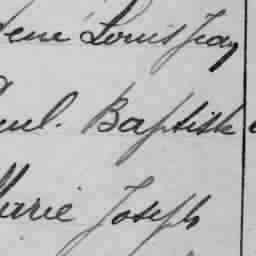 René Louis Jean
Paul. Baptiste
Marie Joseph